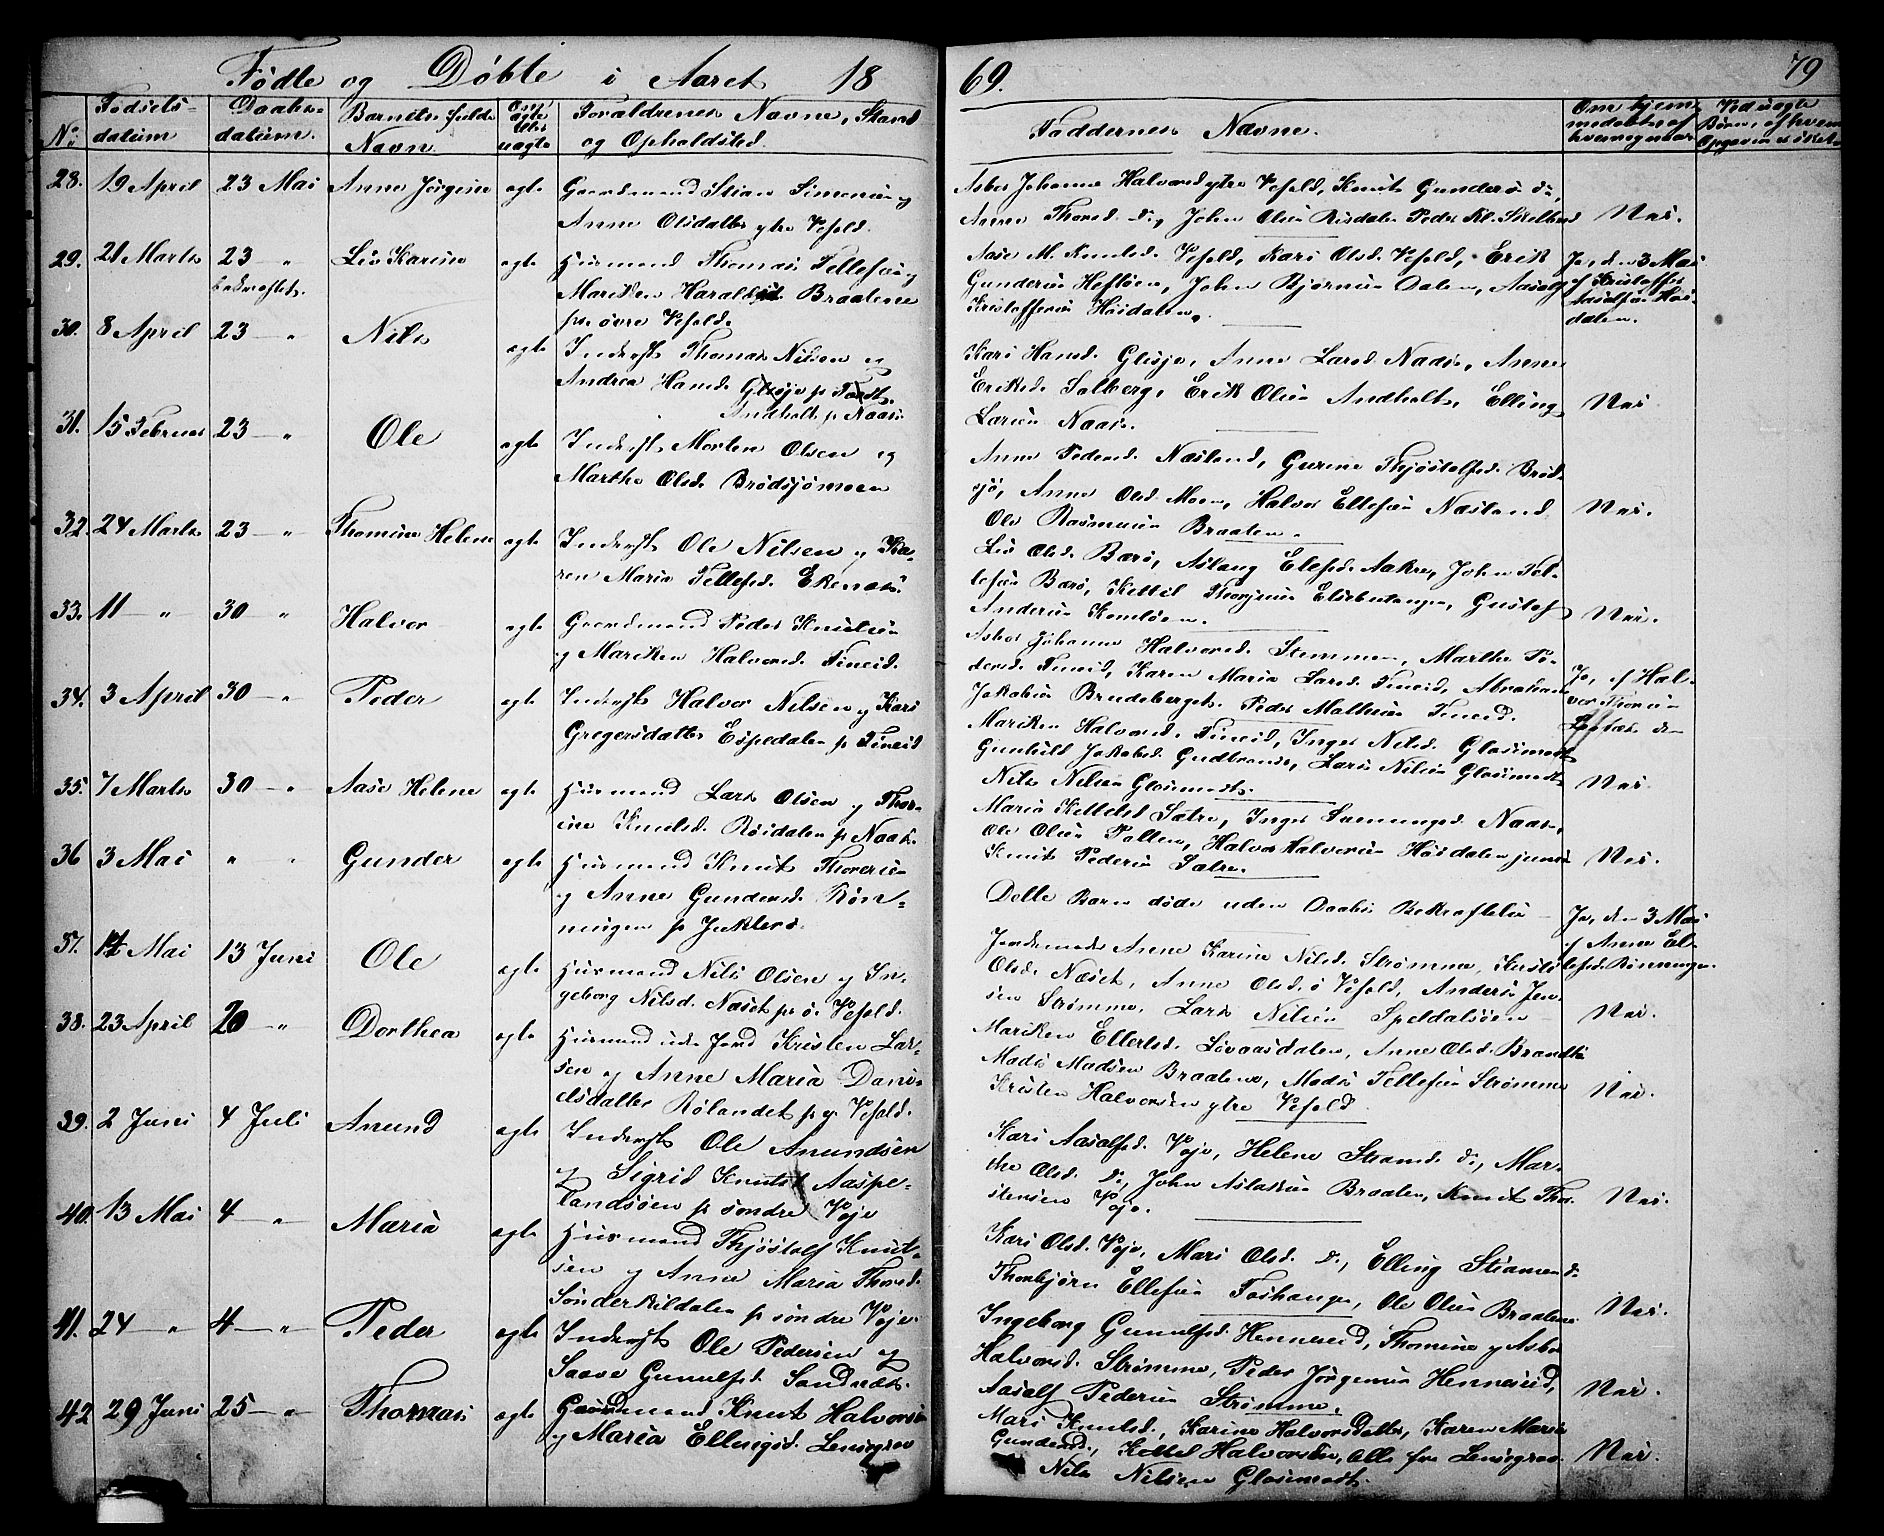 Fødte og Døbte i Aaret 18
69.
79
No
Fødsels-
datum
Daabs-
datum.
Barnets fulde
Navn.
Om
ægte
eller
uægte
Forældrenes Navne, Stand
og Opholdsted.
Faddernes Navne.
Om hjem-
medøbt, af
hvem og naar
Ved uægte
Børn, af hvem
Opgaven er sket
28. 19 April 23 Mai Anne Jørgine ægte Gaardmand Stian Simonsen og
Anne Olsdatter ytre Vefald.
Asbor Johanne Halvorsd ytre Vefald, Knut Gunders. do,
Anne Thorsd. do, John Olsen Risdalen Peder Kl. Skelbred
Nei.
29. 21 Marts 23 " Liv Karine ægte Husmand Thomas Tellefsen og
bekræftet.
Mariken Haraldsd. Braatene
pr øvre Vefald.
Aase M. Knutsd. Vefald, Kari Olsd. Vefald, Erik
Gundersen Hefteen, John Bjørnsen Dalen, Aasolf
Kristoffersen Høidalen.
Ja, den 3 Mai
af Kristoffer
Aasolfsen Høi-
dalen.
30. 8 April 23 " Nils ægte Inderst Thomas Nilsen og
Andrea Hansd. Glesje pr Fordt.
Andholt pr Naas
Kari Hansd. Glesje, Anne Larsd. Naas, Anne
Eriksd. Solberg, Erik Olsen Andholt, Elling
Larsen Naas.
Nei
31. 15 Februar 23 " Ole ægte Inderst Morten Olsen og
Marthe Olsd. Brødsjømoen
Anne Pedersd. Næsland, Gurine Thjøstolfsd. Brød-
sjø, Anne Olsd. Moen, Halvor Ellefsen Næsland
Ole Rasmusen Braaten.
Nei.
32. 24 Marts 23 " Thomine Helene ægte Inderst Ole Nilsen og Ka-
ren Maria Tellefsd. Ekenæs.
Liv Olsd. Barø, Aslaug Elefsd. Aakre, John Tel-
lefsen Barø, Kettil Thorjusen Elsebutangen, Gustaf
Andersen Komløen.
Nei.
33. 11 " 30 " Halvor ægte Gaardmand Peder Knutsen
og Mariken Halvorsd. Tineid.
Asbor Johanne Halvorsd. Stemmen, Marthe Pe-
dersd. Tineid, Karen Maria Larsd. Tineid, Abraham
Jakobsen Brudeberget. Peder Mathisen Tineid.
34. 3 April 30 " Peder ægte Inderst Halvor Nilsen og Kari
Gregersdatter Espedalen pr Tineid
Mariken Halvorsd. Tineid, Inger Nilsd. Glosimodt
Gunhild Jakobsd. Gudbrands, Lars Nilsen Glosimodt,
Nils Nilsen Glosimodt.
Ja, af Hal-
vor Thorsen
35. 7 Marts 30 " Aase Helene ægte Husmand Lars Olsen og Thor-
ine Knutsd. Røsdalen pr Naas.
Maria Kettelsd Sætre, Inger Sæmungsd. Naas,
Ole Olsen Pollen, Halvor Halvorsen Høidalen junior
Knut Pedersen Sætre.
Nei.
36 3 Mai " " Gunder ægte Husmand Knut Thoresen
og Anne Gundersd. Røn-
ningen pr Juklerø.
Dette Barn døde uden Daabs Bekræftelse
Ja, den 3 Mai
af Anne El-
lefsd. Rønningen.
37. 14 Mai 13 Juni Ole ægte Husmand Nils Olsen og In-
geborg Nilsd. Næset pr ø. Vefald.
Jordemoder Anne Karine Nilsd. Strømme, Kirsti
Olsd. Næset, Anne Olsd. ø Vefald, Anders Jen-
sen Strømme, Lars Nilsen Speldalsøen
Nei.
38. 23 April 20 " Dorthea ægte Husmand uden Jord Kristen Lar-
sen og Anne Maria Dani-
elsdatter Rølandet pr y. Vefald.
Mariken Ellertsd. Lovaasdalen, Anne Olsd. Brandli
Mads Madsen Braatene, Mads Tellefsen Strømme
Kristen Halvorsen ytre Vefald
Nei.
39. 2 Juni 4 Juli Anund ægte Inderst Ole Anundsen
og Sigrid Knutsd. Aaspe-
landsøen pr søndre Voje
Kari Aasolfsd. Voje, Helene Stiansd. do, Mar-
the Olsd. do, John Aslaksen Braaten, Knut Tho-
stensen Voje.
Nei.
40. 13 Mai 4 " Maria ægte Husmand Thjøstolf Knut-
sen og Anne Maria Thorsd.
Sønderkildalen pr søndre Voje.
Kari Olsd. Voje, Mari Olsd. do, Elling Stiansen do
Thorbjørn Ellefsen Foshaugen, Ole Olsen Braatene
Nei.
41. 24 " 4 " Peder ægte Inderst Ole Pedersen og
Saave Gunulfsd. Sandnæs.
Ingeborg Gunulfsd. Henneseid, Thomine og Asbor
Halvorsd. Strømme, Peder Jørgensen Henneseid,
Aasolf Pedersen Strømme.
Nei.
42 29 Juni 25 " Thomas ægte Gaardmand Knut Halvorsen
og Maria Ellingsd. Lensegrav
Mari Knutsd., Karine HalvorsDatter, Karen Maria
Gundersd., Kettel Halvorsen, Alle fra Lensegrav
Nils Nilsen Glosimodt.
Nei.